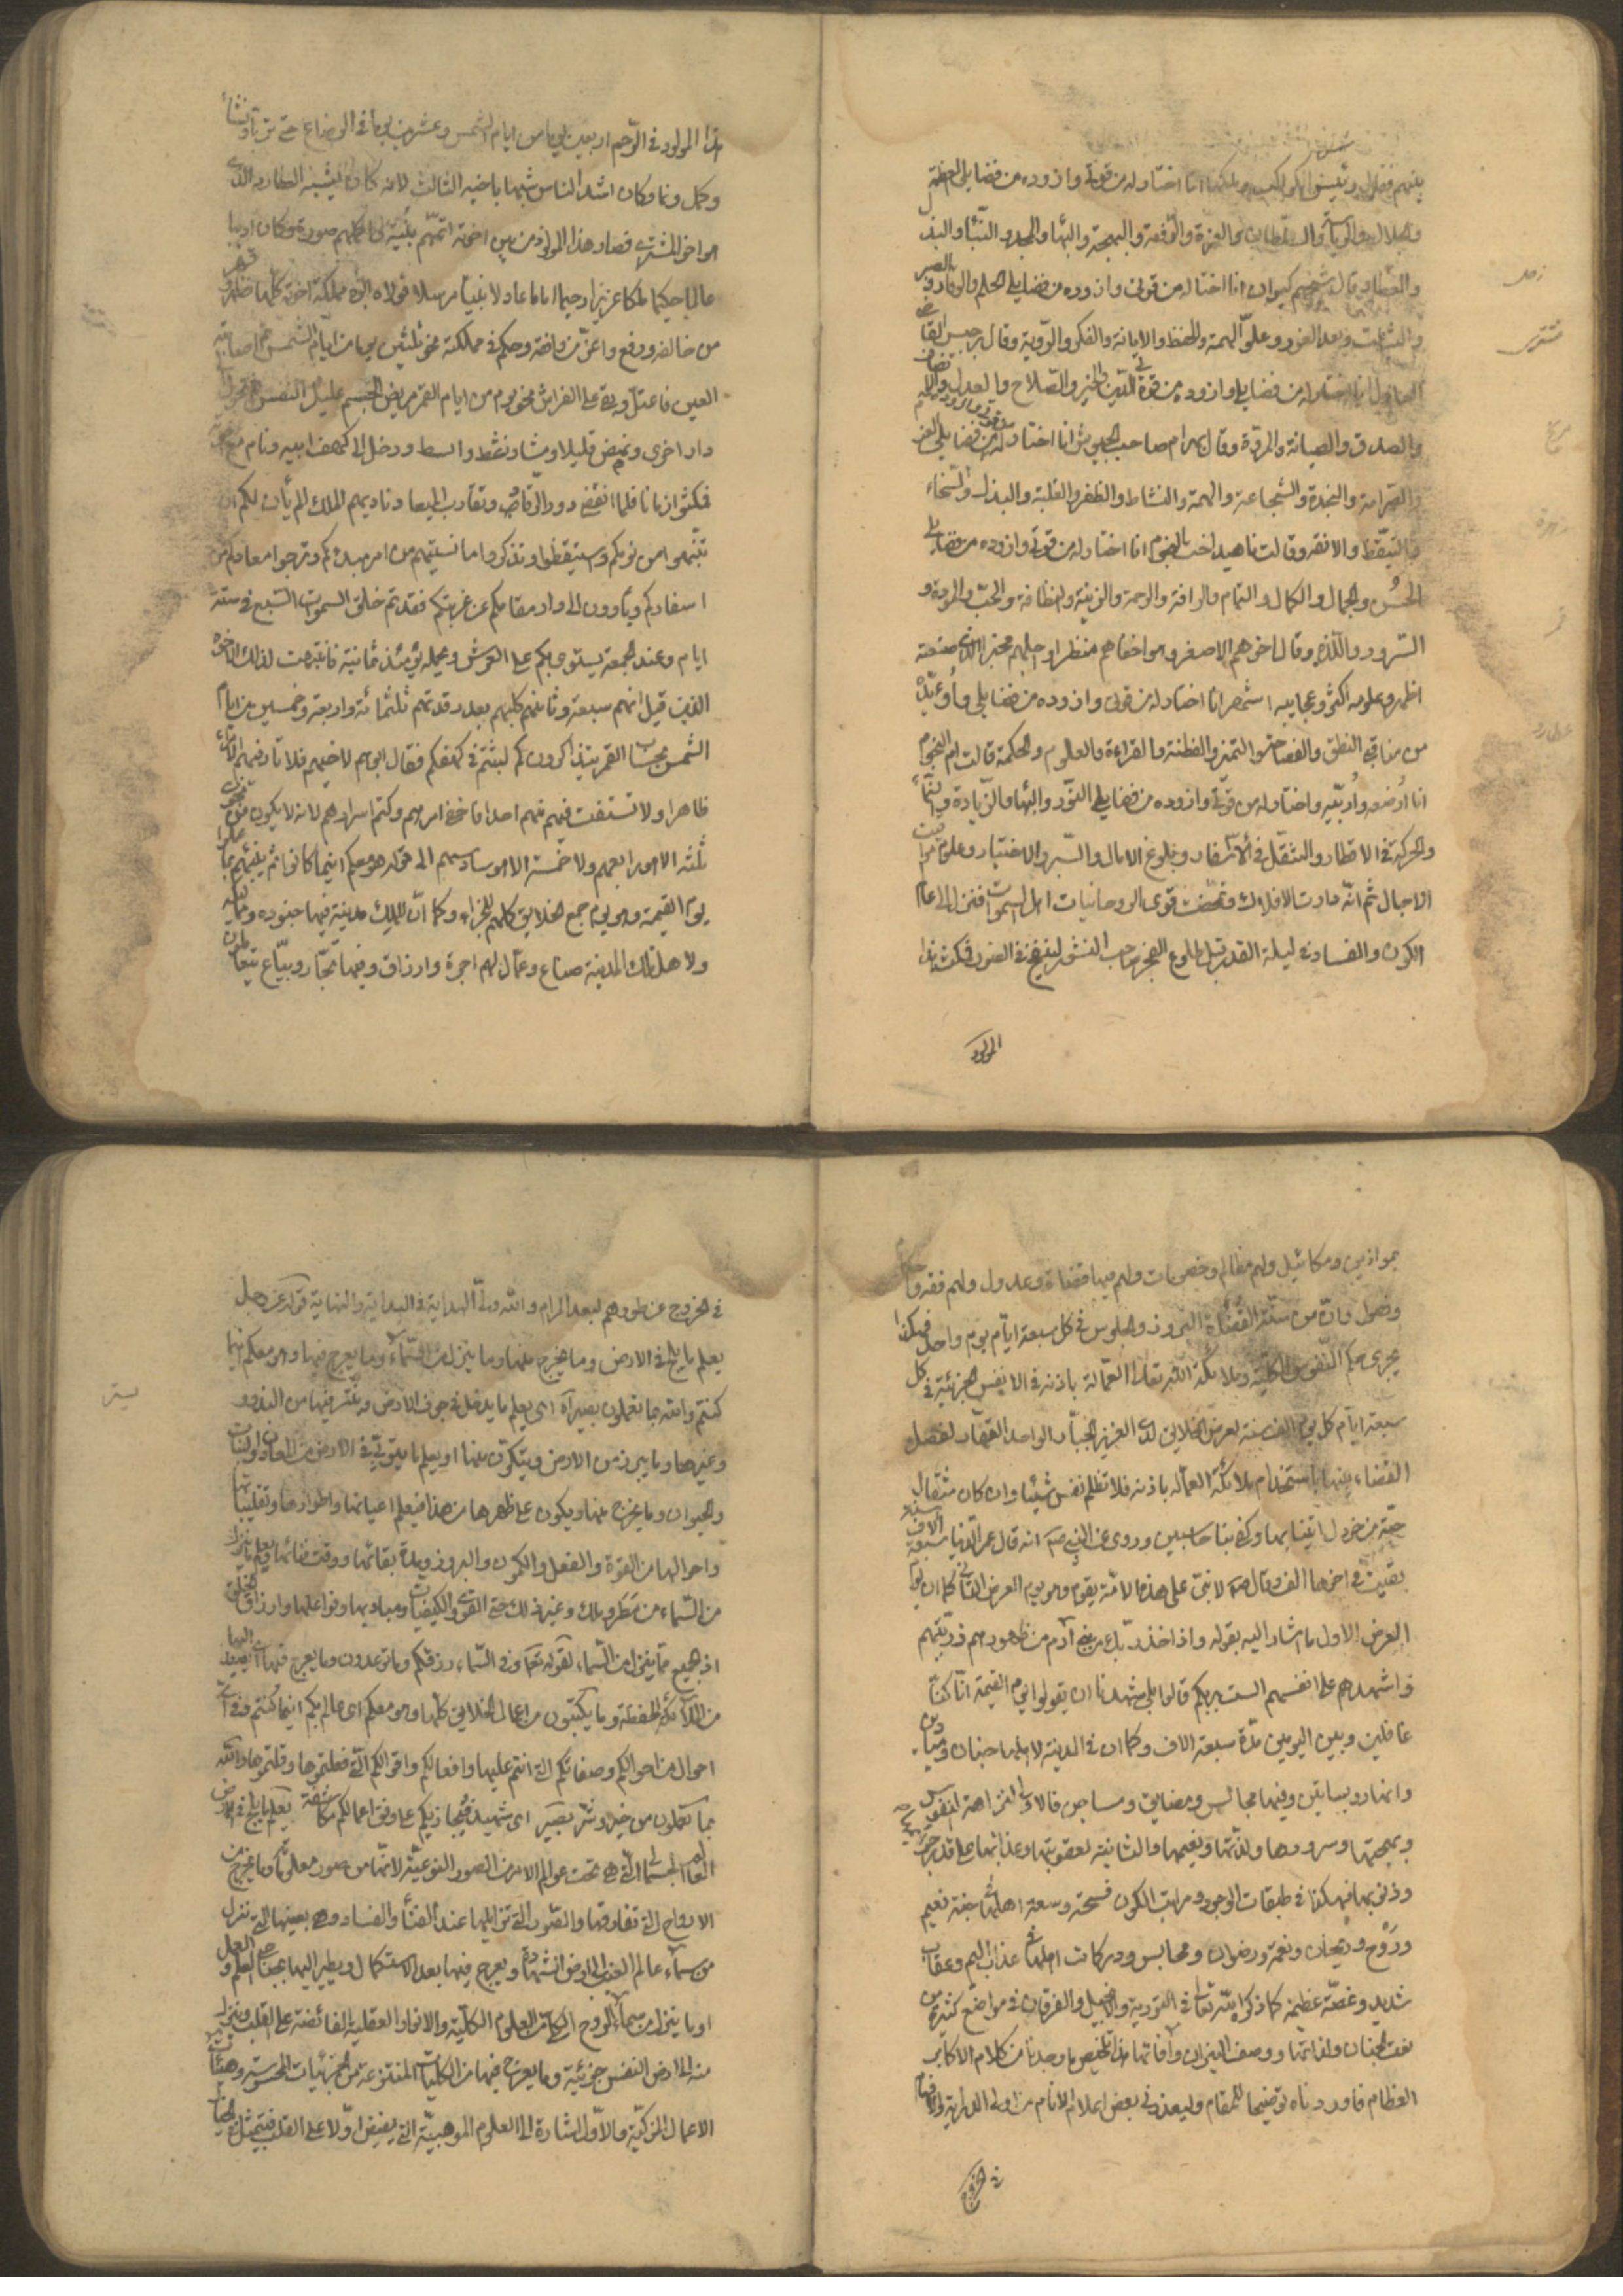 بينهم فقال رئيس الكواكب وملكها انا اختار له من قوتى وازوده من فضايلى العظمة
والجلال والرياسة والسلطان والعزة والرفعة والبهجة والبهاء والمجد والثناء والبذل
والعطا وقال شيخهم كيوان انا اختار له من قوتى وازوده من فضايلى الحلم والوقار والصبر
والثبات وبعد الغور وعلو الهمة والحفظ والامانة والفكر والروية وقال برجيس القاضى
العادل انا اختار له من فضايلى وازوده من قوتى الدين والخير والصلاح والعدل والانصاف
والصدق والصيانة والمروة وقال بهرام صاحب الجيوش انا اختار له من فضايلى العز
والصرامة والنجدة والشجاعة والهمة والنشاط والظفر والغلبة والبذل والسخاء
والتيقظ والانفة وقالت ناهيد اخت النجوم انا اختار له من قوتى وازوده من فضايلى
الحسن والجمال والكمال والتمام والرافة والرحمة والزينة والنظافة والحب والمودة و
السرور واللذة وقال اخوهم الاصغر وهو اخفاهم منظرا واجلهم مخبرا الذى صنعته
اظهر وعلومه اكثر وعجايبه اشهر انا اختار له من قوتى وازوده من فضايلى وأوئده
من مناقبى النطق والفصاحة والتميز والفطنة والقراءة والعلوم والحكمة قالت ام النجوم
انا ارضعه واربيه واختار له من قوتى وازوده من فضايلى النور والبهاء والزيادة والنماء
والحركة فى الاقطار والتنقل فى الاسفار وبلوغ الامال والسير والاختيار وعلوم مواقيت
الاجال ثم انه دارت الافلاك وتمخضت قوى الروحانيات اهل السموات فنزل الى عالم
الكون والفساد فى ليلة القدر قبل طلوع الفجر صاحب النشور لينفخ فى الصور فمكث هذا
المولود
زحل
مشترى
مريخ
زهرة
عطارد
قمر
هذا المولود فى الرحم اربعين يوما من ايام الشمس وعشرين يوما فى الرضاع حتى تربا ونشأ
وكمل ونما وكان اشد الناس شبها باخيه الثالث لانه كان يشبه العطارد الذى
هو اخو المشترى فصار هذا المولود من بين اخوته اتمهم بنية واكملهم صورة وكان اديبا
عالما حكيما ملكا عزيزا رحيما اماما عادلا نبيا مرسلا فولاه ابوه مملكة اخوته كلها فظفر وقهر
من خالفه ورفع واعز من وافقه وحكم فى مملكته نحو ثلثين يوما من ايام الشمس ثم اصابته
العين فاعتل وبقى على الفراش نحو يوم من ايام القمر مريض الجسم عليل النفس ثم تحول الى
دار اخرى ونهض قليلا ومشا ونشط وانبسط ودخل الى كهف ابيه ونام مع اخوته
فمكثوا زمانا فلما انقضى دور الرقاد وتقارب الميعاد ناديهم الملك الم يأن لكم ان
تنتبهوا من نومكم وتستيقظوا وتذكروا ما نسيتم من امر مبدئكم وترجعوا معادكم من
اسفاركم وتأوون الى دار مقامكم عن غربتكم فقد تم خلق السموات السبع فى ستة
ايام وعند الجمعة يستوى بكم على العرش ويحمله يومئذ ثمانية فانتبهت لذلك الاخوة
الذين قيل انهم سبعة وثامنهم كلبهم بعد رقدتهم ثلثمائة واربعة وخمسين من ايام
الشمس بحساب القمر يتذاكرون كم لبثتم فى كهفكم فقال ابوهم لاخيهم فلا تمار فيهم الا مراء
ظاهرا ولا تستفت فيهم منهم احدا فاخفى امرهم وكتم اسرارهم لانه لا يكون من نجوى
ثلثة الا هو رابعهم ولا خمسة الا هو سادسهم الى قوله هو معكم اينما كانوا ثم ينبئهم بما عملوا
يوم القيمة وهو يوم جمع الخلايق كلهم للجزاء وكما ان للملك مدينة فيها جنوده ومماليكه
ولاهل تلك المدينة صناع وعمال لهم اجرة وارزاق وفيها تجار وبياع يتعاملون
بموازين ومكائيل ولهم مظالم وخصومات ولهم فيها قضاة وعدول ولهم فقه واحكام
وفصول وان من سنة القضاة البروز والجلوس فى كل سبعة ايام يوم واحد فهكذا
يجرى حكم النفوس الكلية وملائكة الله تعالى العمالة باذنه فى الانفس الجزئية فى كل
سبعة ايام كل يوم الف سنة لعرض الخلايق لدى العزيز الجبار الواحد القهار لفصل
القضاء بينها باستخدام ملائكة العماله باذنه فلا تظلم نفس شيئا وان كان مثقال
حبة من خردل اتينا بها وكفى بنا حاسبين وروى عن النبى صم انه قال عمر الدنيا سبعة الاف سنة
بعثت فى اخرها الف وقال صم لا نبى على هذه الامة يقوم وهو يوم العرض الثانى كما ان يوم
العرض الاول ما اشار اليه بقوله واذ اخذ ربك من بنى آدم من ظهورهم ذريتهم
واشهدهم على انفسهم الست بربكم قالوا بلى شهدنا ان يقولوا يوم القيمة انا كنا
غافلين وبين اليومين مدة سبعة الاف وكما ان فى المدينة لاهلها جنان وميادين
وانهار وبساتين وفيها مجالس ومضايق ومساجن فالاولى لنزاهة النفوس
وبهجتها وسرورها ولذتها ونعيمها والثانية لعقوبتها وعذابها على قدر جرمها
وذنوبها فهكذا فى طبقات الوجود ومراتب الكون فسحة وسعة اهلها فى جنة نعيم
وروح وريحان ونعمة ورضوان ومحابس ودركات اهلها فى عذاب اليم وعقاب
شديد وغصة عظيمة كما ذكر الله تعالى فى التورية والانجيل والفرقان فى مواضع كثيرة من
نعت الجنان ولذاتها ووصف النيران وآفاتها هذا تلخيص ما وجدنا من كلام الاكابر
العظام فاوردناه توضيحا للمقام وليعذرنى بعض اعلام الانام من اولى الدراية والافهام
فى الخروج
فى الخروج عن طورهم لبعد المرام والله ولى الهداية فى البداية والنهاية قوله عز وجل
يعلم ما يلج فى الارض وما يخرج منها وما ينزل من السماء وما يعرج فيها وهو معكم اينما
كنتم والله بما تعملون بصير اى يعلم ما يدخل فى جوف الارض ويستتر فيها من البذور
وغيرها وما يبرز من الارض ويتكون منها او يعلم ما يتوتى فى الارض من المعادن والنبات
والحيوان وما يخرج منها ويكون على ظهرها من هذا فيعلم اعيانها واطوارها وتقلباتها
واحوالها من القوة والفعل والكمون والبروز ومدة بقائها ووقت فنائها ويعلم ما ينزل
من السماء من مطر وملك وغير ذلك حتى القوى والكيفيات ومباديها وفواعلها وارزاق الخلق
اذ الجميع مما ينزل من السماء لقوله تعم وفى السماء رزقكم وما توعدون وما يعرج فيها اى يصعد اليها
من الملائكة الحفظة وما يكتبون من اعمال الخلايق كلها وهو معكم اى عالم بكم اينما كنتم وفى اى
احوال من احوالكم وصفاتكم التى انتم عليها وافعالكم واقوالكم التى فعلتموها وقلتموها والله
بما تعملون من خير وشر بصير اى شهيد فيجازيكم على وفق اعمالكم مكاشفة يعلم ما يلج فى ارض
العالم الجسمانى التى هى تحت عوالم الامر من الصور النوعية لانها من صور معلوماته وما يخرج من
الارواح التى تفارقها والصور التى تزايلها عند الفناء والفساد وهى بعينها التى تنزل
من سماء عالم الغيب الى ارض الشهادة ويعرج فيها بعد الاستكمال ويطير اليها بجناحى العلم والعمل
او ما ينزل من سماء الروح الكلى من العلوم الكلية والانوار العقلية الفائضة على القلب وينزل
منه الى ارض النفس جزئية وما يعرج فيها من الكليات المنتزعة من الجزئيات المحسوسة وهيئات
الاعمال المزكية والاول اشارة الى العلوم الموهبية التى يفيض اولا على القلب فيتمثل